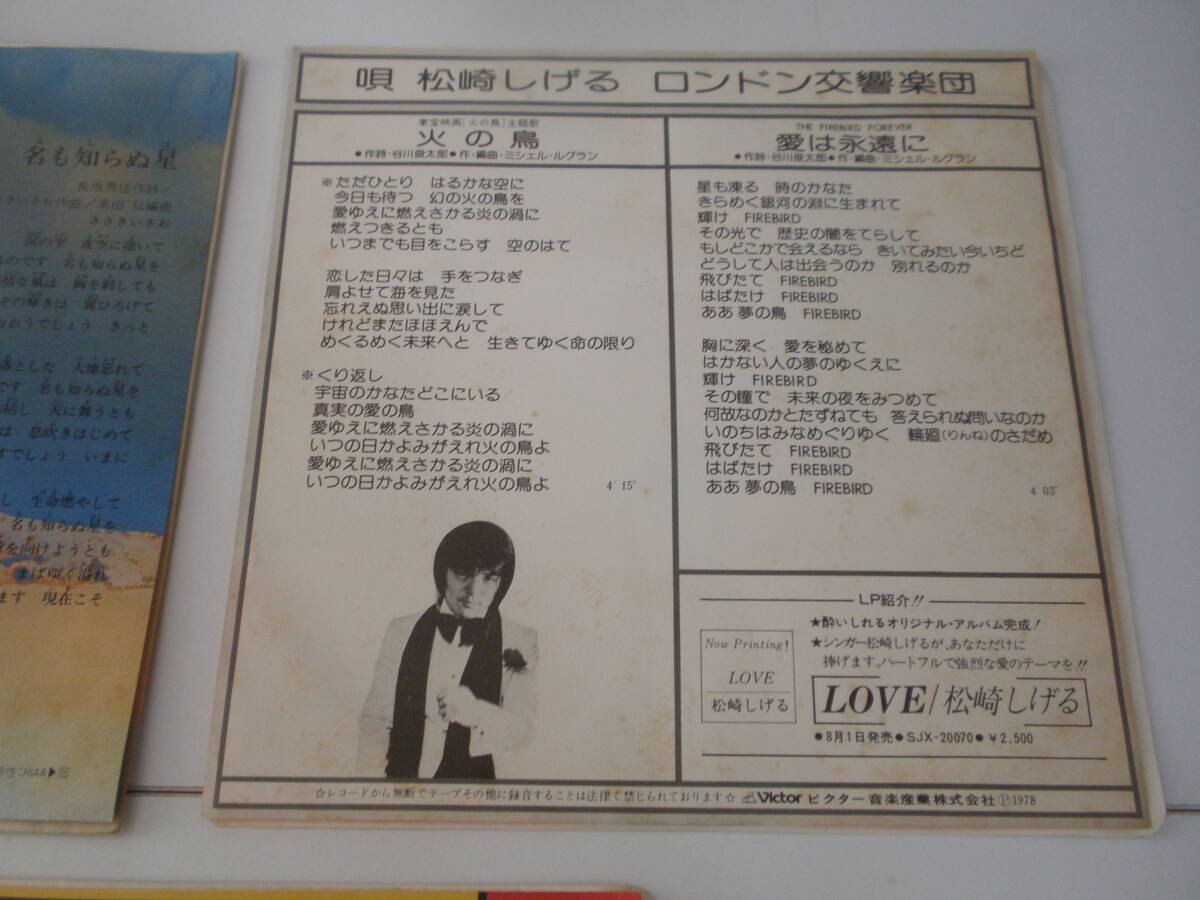 名も知らぬ星
長坂秀佳作詩／
きいさお作曲／高田 弘編曲
ささきいさお
夜空に描いて
のです 名も知らぬ星を
な風は 胸を刺しても
その輝きは 翼ひろげて
おおうでしょう きっと
落とした 大地忘れて
です 名も知らぬ星を
枯し 天に舞うとも
は 息吹きはじめて
すでしょう いまに
し 生命燃やして
名も知らぬ星を
を向けようとも
まばゆく溢れ
ます 現在こそ
特性：RIAA▶
唄 松崎しげる ロンドン交響楽団
東宝映画［火の鳥］主題歌
火の鳥
●作詩・谷川俊太郎●作・編曲・ミシェル・ルグラン
※ただひとり はるかな空に
今日も待つ 幻の火の鳥を
愛ゆえに燃えさかる炎の渦に
燃えつきるとも
いつまでも目をこらす 空のはて
恋した日々は 手をつなぎ
肩よせて海を見た
忘れえぬ思い出に涙して
けれどまたほほえんで
めくるめく未来へと 生きてゆく命の限り
※くり返し
宇宙のかなたどこにいる
真実の愛の鳥
愛ゆえに燃えさかる炎の渦に
いつの日かよみがえれ火の鳥よ
愛ゆえに燃えさかる炎の渦に
いつの日かよみがえれ火の鳥よ 4′15″
THE FIREBIRD FOREVER
愛は永遠に
●作詩・谷川俊太郎●作・編曲・ミシェル・ルグラン
星も凍る 時のかなた
きらめく銀河の淵に生まれて
輝け FIREBIRD
その光で 歴史の闇をてらして
もしどこかで会えるなら きいてみたい今いちど
どうして人は出会うのか 別れるのか
飛びたて FIREBIRD
はばたけ FIREBIRD
ああ 夢の鳥 FIREBIRD
胸に深く 愛を秘めて
はかない人の夢のゆくえに
輝け FIREBIRD
その瞳で 未来の夜をみつめて
何故なのかとたずねても 答えられぬ問いなのか
いのちはみなめぐりゆく 輪廻(りんね)のさだめ
飛びたて FIREBIRD
はばたけ FIREBIRD
ああ 夢の鳥 FIREBIRD 4′03″
LP紹介!!
★酔いしれるオリジナル・アルバム完成！
★シンガー松崎しげるが、あなただけに
捧げます。ハートフルで強烈な愛のテーマを!!
Now Printing!
LOVE
松崎しげる
LOVE/松崎しげる
●8月1日発売●SJX-20070●￥2,500
☆レコードから無断でテープその他に録音することは法律で禁じられております☆ Victor ビクター音楽産業株式会社Ⓟ1978